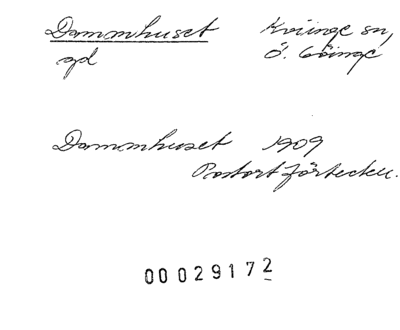 Dammhuset Kviinge sn,
gd Ö. Göinge
Dammhuset 1909
Postort förteckn.
00029172